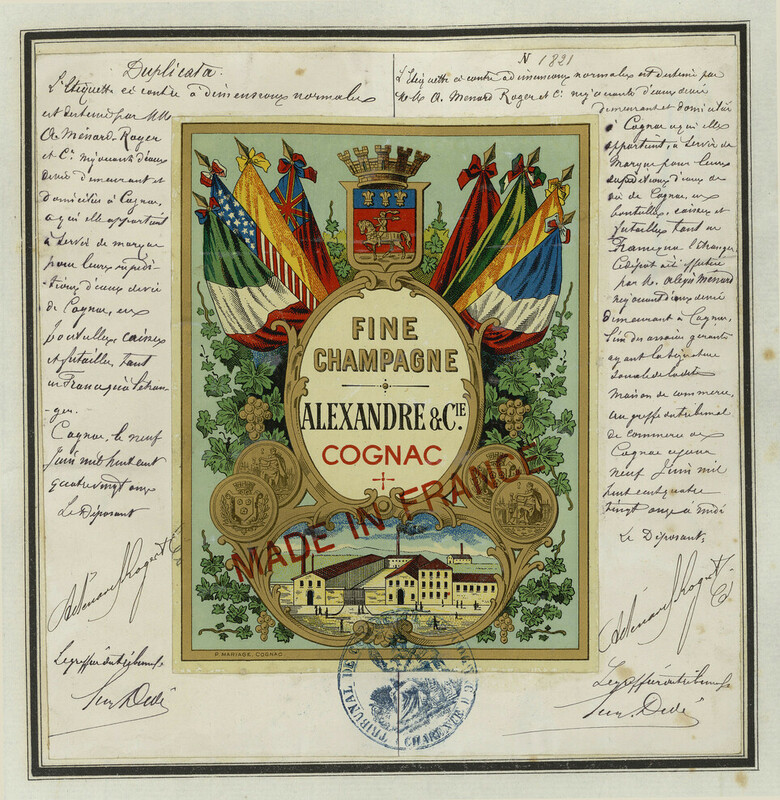 Duplicata.
L'Etiquette ci contre à dimensions normales
est destinée par MM
A. Ménard-Roger
et Cie négociants d'eaux
de vie demeurant et
domiciliés à Cognac,
à qui elle appartient
à servir de marque
pour leurs expédi-
-tions d'eaux de vie
de Cognac, en
bouteilles, caisses
et futailles, tant
en France qu'à l'étran-
-ger.
Cognac, le neuf
Juin mil huit cent
quatre vingt onze
Le Déposant
A Ménard Roger & Cie
Le greffier du tribunal
N 1821
L'Etiquette ci contre à dimensions normales est destinée par
MM A. Menard Roger et Cie négociants d'eaux de vie
demeurant et domiciliés
à Cognac à qui elle
appartient, à servir de
Marque pour leurs
expéditions d'eaux de
vie de Cognac, en
bouteilles, caisses et
futailles tant en
France qu'à l'étranger
Le dépôt a été effectué
par M. Alexis Ménard
négociant d'eaux de vie
demeurant à Cognac,
l'un des associés gérants
ayant la signature
sociale de la dite
Maison de commerce,
au greffe du tribunal
de commerce de
Cognac ce jour
neuf Juin mil
huit cent quatre
vingt onze à midi
Le Déposant,
A Ménard Roger & Cie
Le greffier du tribunal
FINE
CHAMPAGNE
ALEXANDRE & CIE.
COGNAC
MADE IN FRANCE
P. MARIAGE, COGNAC.
TRIBUNAL DE
CHARENTE